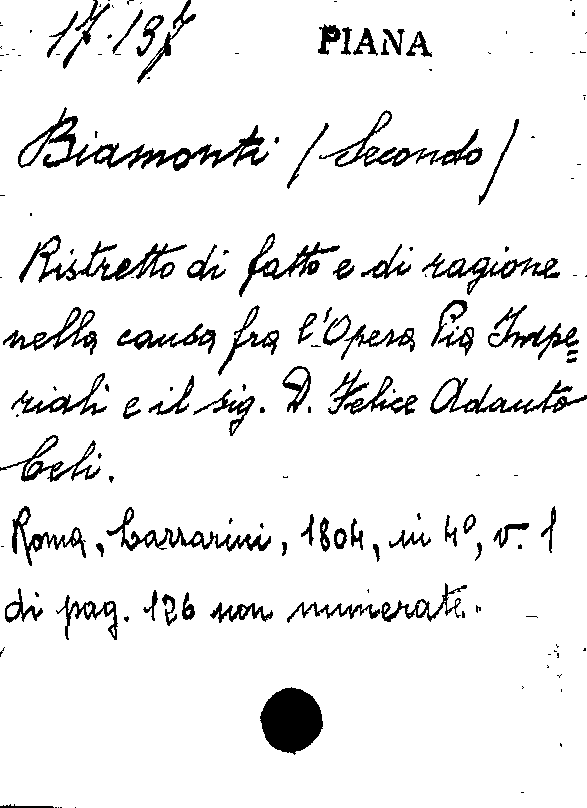 17.137 PIANA
Biamonti (Secondo)
Ristretto di fatto e di ragione
nella causa fra l'Opera Pia Impe=
riali e il sig. D. Felice Adauto
Celi.
Roma, Lazzarini, 1804, in 4º, v. 1
di pag. 126 non numerate.